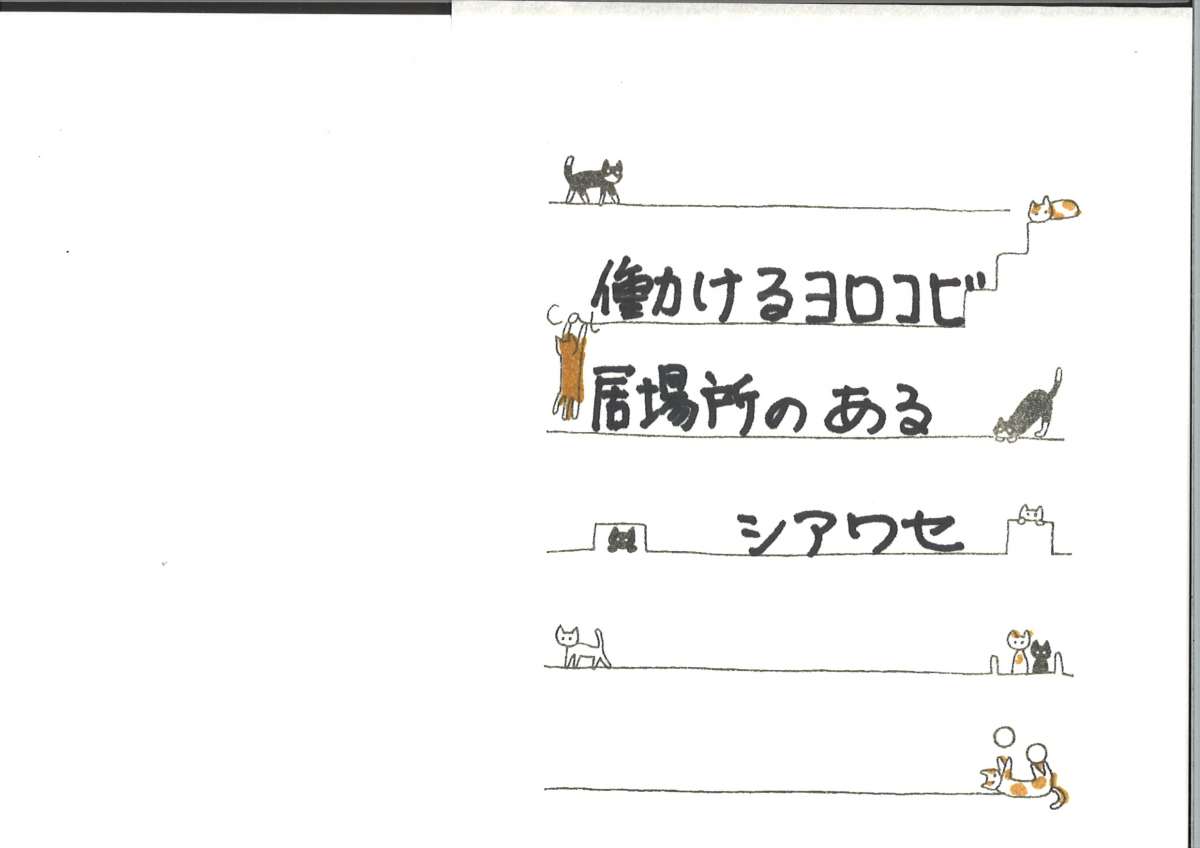 働けるヨロコビ
cat
居場所のある
シアワセ